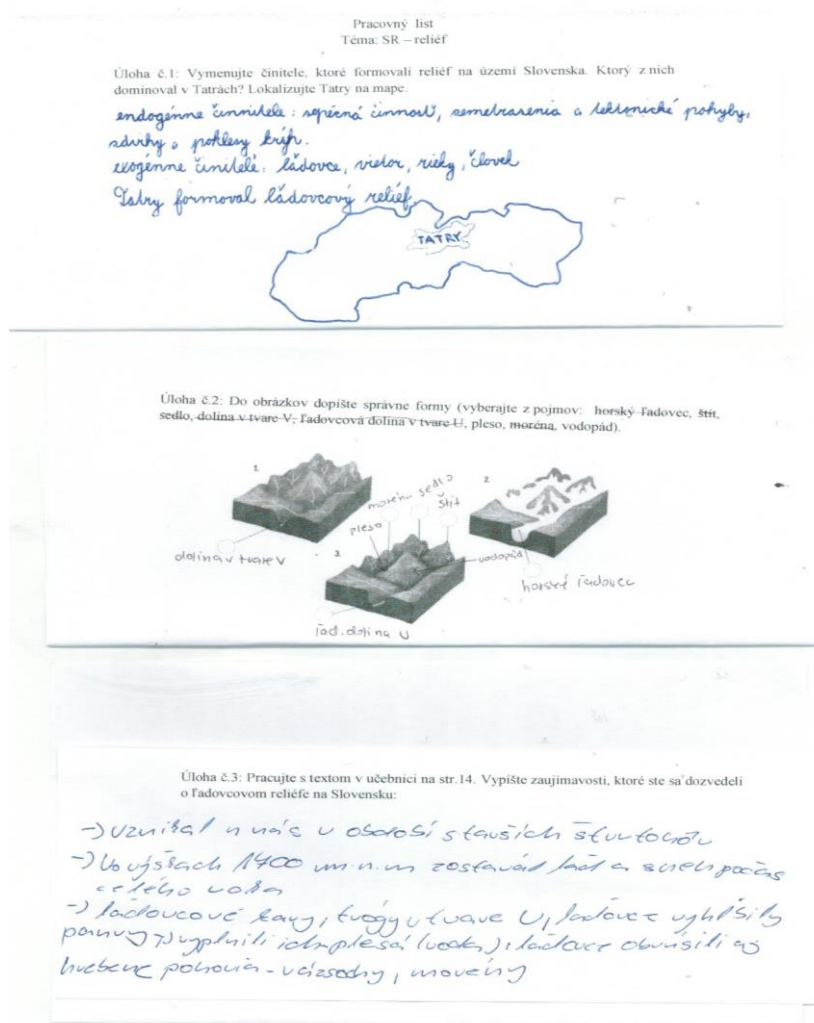 Pracovný list
Téma: SR – reliéf
Úloha č.1: Vymenujte činitele, ktoré formovali reliéf na území Slovenska. Ktorý z nich
dominoval v Tatrách? Lokalizujte Tatry na mape.
endogénne činnitele: sopečná činnosť, zemetrasenia a tektonické pohyby,
zdvihy a poklesy krýh.
exogénne činitelé: ľádovce, vietor, rieky, človek
Tatry formoval ľádovcový reliéf
TATRY
Úloha č.2: Do obrázkov dopíšte správne formy (vyberajte z pojmov: horský ľadovec, štít,
sedlo, dolina v tvare V, ľadovcová dolina v tvare U, pleso, moréna, vodopád).
1.
2.
moréna
sedlo
štít
pleso
dolina v tvare V
3.
vodopád
horský ľadovec
ľad. dolina U
Úloha č.3: Pracujte s textom v učebnici na str.14. Vypíšte zaujímavosti, ktoré ste sa dozvedeli
o ľadovcovom reliéfe na Slovensku:
-) vznikal u nás v období starších štvrtohôr
-) Vo výškach 1700 m.n.m zostával ľad a sneh počas
celého roka
-) ľádovcové kary, trógy v tvare U, ľadovce vyhĺbili
panvy -) vyplnili ich plesá (voda), ľádovce obrúsili aj
hrebene pohoria - morény